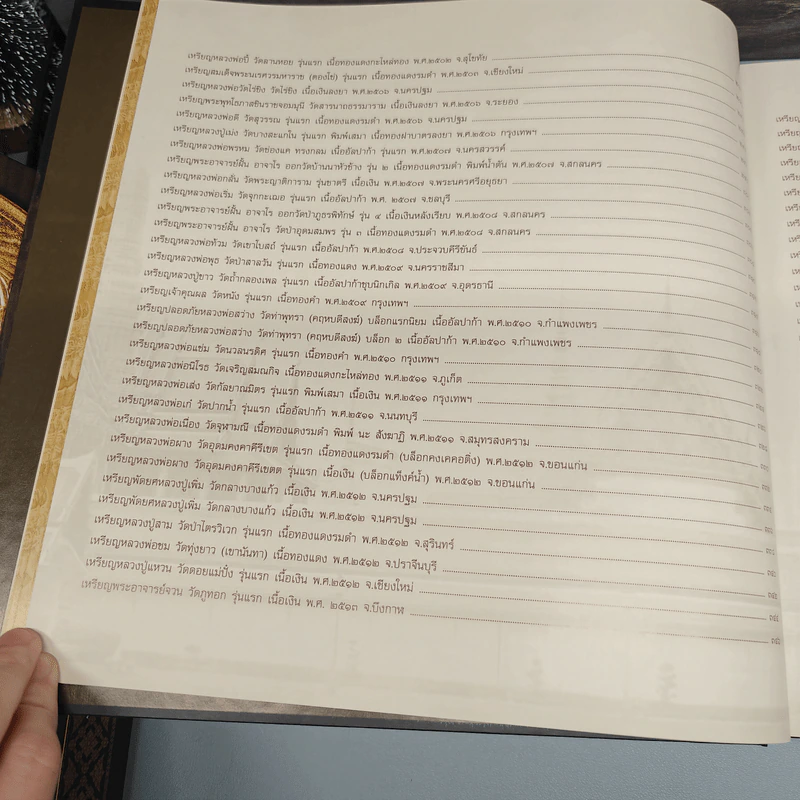 เหรียญหลวงพ่อปี้ วัดลานหอย รุ่นแรก เนื้อทองแดงกะไหล่ทอง พ.ศ.๒๕๐๒ จ.สุโขทัย
เหรียญสมเด็จพระนเรศวรมหาราช (ดองโย่) รุ่นแรก เนื้อทองแดงรมดำ พ.ศ.๒๕๐๓ จ.เชียงใหม่
เหรียญหลวงพ่อวัดไร่ขิง วัดไร่ขิง เนื้อเงินลงยา พ.ศ.๒๕๐๖ จ.นครปฐม
เหรียญพระพุทโธภาสชินราชจอมมุนี วัดสารนาถธรรมาราม เนื้อเงินลงยา พ.ศ.๒๕๐๖ จ.ระยอง
เหรียญหลวงพ่อดี วัดสุวรรณ รุ่นแรก เนื้อทองแดงรมดำ พ.ศ.๒๕๐๖ จ.นครปฐม
เหรียญหลวงปู่เม่ง วัดบางสะแกใน รุ่นแรก พิมพ์เสมา เนื้อทองฝาบาตรลงยา พ.ศ.๒๕๐๖ กรุงเทพฯ
เหรียญหลวงพ่อพรหม วัดช่องแค ทรงกลม เนื้ออัลปาก้า รุ่นแรก พ.ศ.๒๕๐๗ จ.นครสวรรค์
เหรียญพระอาจารย์ฝั้น อาจาโร ออกวัดบ้านนาหัวช้าง รุ่น ๒ เนื้อทองแดงรมดำ พิมพ์น้ำตัน พ.ศ.๒๕๐๗ จ.สกลนคร
เหรียญหลวงพ่อกลั่น วัดพระญาติการาม รุ่นขาตรี เนื้อเงิน พ.ศ.๒๕๐๗ จ.พระนครศรีอยุธยา
เหรียญหลวงพ่อเริ่ม วัดจุกกะเฌอ รุ่นแรก เนื้ออัลปาก้า พ.ศ. ๒๕๐๗ จ.ชลบุรี
เหรียญพระอาจารย์ฝั้น อาจาโร ออกวัดป่าภูธรพิทักษ์ รุ่น ๔ เนื้อเงินหลังเรียบ พ.ศ.๒๕๐๘ จ.สกลนคร
เหรียญพระอาจารย์ฝั้น อาจาโร วัดป่าอุดมสมพร รุ่น ๓ เนื้อทองแดงรมดำ พ.ศ.๒๕๐๘ จ.สกลนคร
เหรียญหลวงพ่อท้วม วัดเขาโบสถ์ รุ่นแรก เนื้ออัลปาก้า พ.ศ.๒๕๐๘ จ.ประจวบคีรีขันธ์
เหรียญหลวงพ่อพุธ วัดป่าสาลวัน รุ่นแรก เนื้อทองแดง พ.ศ.๒๕๐๙ จ.นครราชสีมา
เหรียญหลวงปู่ขาว วัดถ้ำกลองเพล รุ่นแรก เนื้ออัลปาก้าชุบนิกเกิล พ.ศ.๒๕๐๙ จ.อุดรธานี
เหรียญเจ้าคุณผล วัดหนัง รุ่นแรก เนื้อทองคำ พ.ศ.๒๕๐๙ กรุงเทพฯ
เหรียญปลอดภัยหลวงพ่อสว่าง วัดท่าพุทรา (คฤหบดีสงฆ์) บล็อกแรกนิยม เนื้ออัลปาก้า พ.ศ.๒๕๑๐ จ.กำแพงเพชร
เหรียญปลอดภัยหลวงพ่อสว่าง วัดท่าพุทรา (คฤหบดีสงฆ์) บล็อก ๒ เนื้ออัลปาก้า พ.ศ.๒๕๑๐ จ.กำแพงเพชร
เหรียญหลวงพ่อแช่ม วัดนวลนรดิศ รุ่นแรก เนื้อทองคำ พ.ศ.๒๕๑๐ กรุงเทพฯ
เหรียญหลวงพ่อนิโรธ วัดเจริญสมณกิจ เนื้อทองแดงกะไหล่ทอง พ.ศ.๒๕๑๑ จ.ภูเก็ต
เหรียญหลวงพ่อเส่ง วัดกัลยาณมิตร รุ่นแรก พิมพ์เสมา เนื้อเงิน พ.ศ.๒๕๑๑ กรุงเทพฯ
เหรียญหลวงพ่อเก๋ วัดปากน้ำ รุ่นแรก เนื้ออัลปาก้า พ.ศ.๒๕๑๑ จ.นนทบุรี
เหรียญหลวงพ่อเนื่อง วัดจุฬามณี เนื้อทองแดงรมดำ พิมพ์ นะ สังฆาฏิ พ.ศ.๒๕๑๑ จ.สมุทรสงคราม
เหรียญหลวงพ่อผาง วัดอุดมคงคาคีรีเขต รุ่นแรก เนื้อทองแดงรมดำ (บล็อกคงเคคอติ่ง) พ.ศ.๒๕๑๒ จ.ขอนแก่น
เหรียญหลวงพ่อผาง วัดอุดมคงคาคีรีเขตต รุ่นแรก เนื้อเงิน (บล็อกแท็งค์น้ำ) พ.ศ.๒๕๑๒ จ.ขอนแก่น
เหรียญพัดยศหลวงปู่เพิ่ม วัดกลางบางแก้ว เนื้อเงิน พ.ศ.๒๕๑๒ จ.นครปฐม
เหรียญพัดยศหลวงปู่เพิ่ม วัดกลางบางแก้ว เนื้อเงิน พ.ศ.๒๕๑๒ จ.นครปฐม
เหรียญหลวงปู่สาม วัดป่าไตรวิเวก รุ่นแรก เนื้อทองแดงรมดำ พ.ศ.๒๕๑๒ จ.สุรินทร์
เหรียญหลวงพ่อชม วัดทุ่งยาว (เขานันทา) เนื้อทองแดง พ.ศ.๒๕๑๒ จ.ปราจีนบุรี
เหรียญหลวงปู่แหวน วัดดอยแม่ปั๋ง รุ่นแรก เนื้อเงิน พ.ศ.๒๕๑๒ จ.เชียงใหม่
เหรียญพระอาจารย์จวน วัดภูทอก รุ่นแรก เนื้อเงิน พ.ศ. ๒๕๑๓ จ.บึงกาฬ